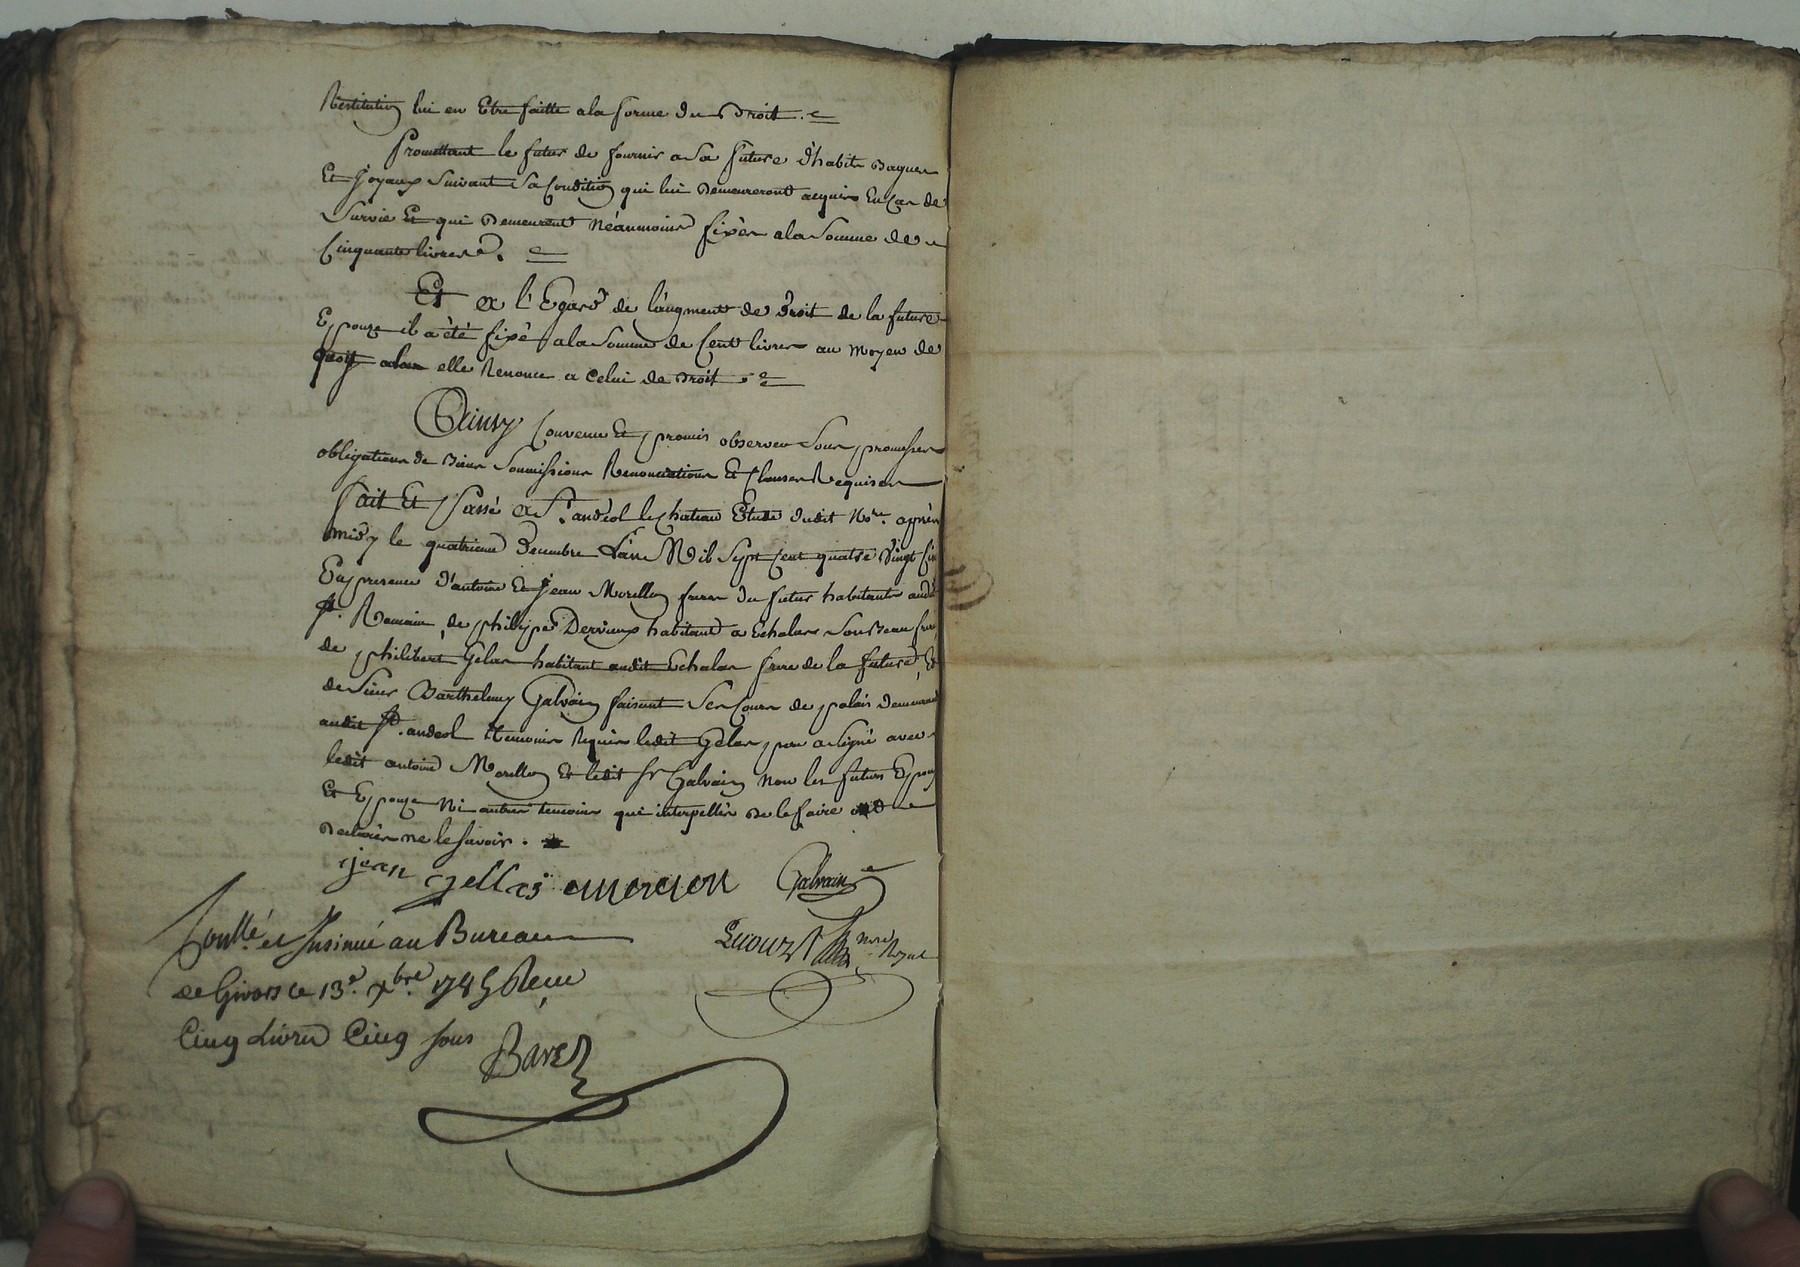 Restitution lui en Etre faitte a la forme du Droit.
Promettant le futur de fournir a Sa future d'habits Bagues
Et Joyaux Suivant Sa Condition qui lui Demeureront acquis En Cas de
Survie Et qui Demeurent Néanmoins fixés a la Somme de
Cinquante livres.
Et a l'Egard de l'augment de Droit de la future
Epouze il a été fixé a la Somme de Cent livres au moyen de
quoy elle Renonce a Celui de Droit
Ainsy Convenu Et promis observer Sous promesses
obligations de Biens Soumissions Renonciations Et Clauses Requises
fait Et Passé a St. andéol le Chateau Etude dudit Nore. après
midy le quatrieme Decembre L'an Mil Sept Cent quatre Vingt Cinq
En presence d'antoine Et Jean Morellon freres du futur habitants audit
St. Romain, de philippe Dervieux habitant a Echalas Son Beau frere
de philibert Gelas habitant audit Echalas frere de la future, Et
de Sieur Barthelemy Galvain faisant Ses Cours de palais Demeurant
audit St. andeol temoins Requis ledit Gelas pere a Signé avec
ledit antoine Morellon Et ledit Sr Galvain Non les futurs Epoux
Et Epouze Ni autres temoins qui interpellés De le faire ont
Declarés ne le Savoir.
jean gellas amorellon Galvain
Contllé et Insinué au Bureau
nore Royal
de Givors ce 13e. Xbre. 1785 Reçu
Cinq Livres Cinq sous